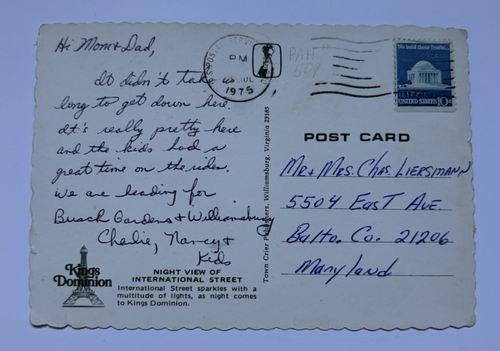 Hi Mom + Dad,
It didn't take
long to get down here.
It's really pretty here
and the kids had a
great time on the rides.
We are heading for
Busch Gardens + Williamsburg
Charlie, Nancy +
Kids
Kings
Dominion
NIGHT VIEW OF
INTERNATIONAL STREET
International Street sparkles with a
multitude of lights, as night comes
to Kings Dominion.
Williamsburg, Virginia 23185
PM
JUL
1975
We hold these Truths...
UNITED STATES 10c
POST CARD
Mr + Mrs. Chas. Liersmann
5504 East Ave.
Balto. Co. 21206
Maryland